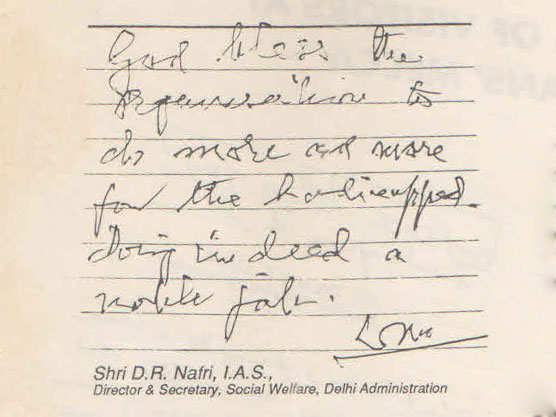 God bless the
organisation to
do more and more
for the handicapped
doing indeed a
noble job.
Shri D.R. Nafri, I.A.S.,
Director & Secretary, Social Welfare, Delhi Administration